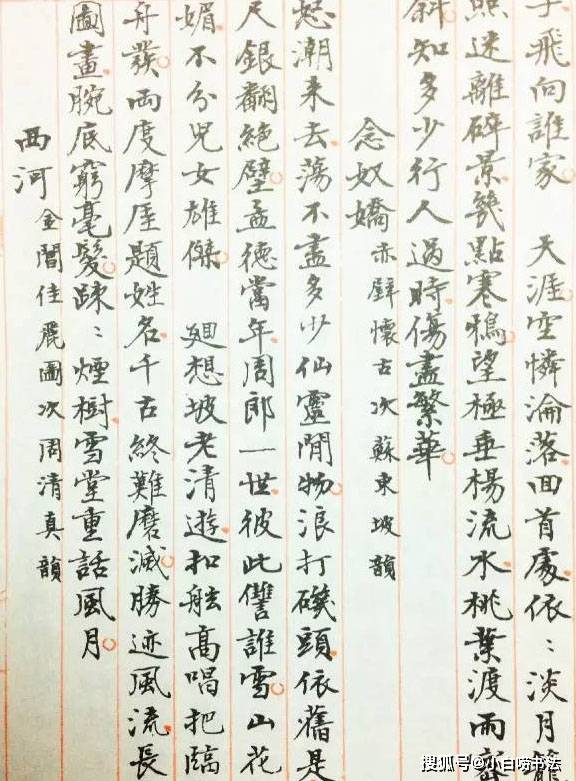 子飛向誰家　天涯空憐淪落回首處依：淡月籠
照迷離碎景幾點寒鴉望極垂楊流水桃葉渡雨
斜知多少行人過時傷盡繁華
念奴嬌 赤壁懷古次蘇東坡韻
怒潮来去蕩不盡多少仙靈閒物浪打磯頭依舊是
尺銀翻絶壁孟德當年周郎一世彼此讐誰雪山花
媚不分兒女雄傑　迴想坡老清遊扣舷高唱把臨
舟發兩度摩厓題姓名千古終難磨滅勝迹風流長
圖畫腕底窮毫髮踈：煙樹雪堂重話風月
西河 金閶佳麗圖次周清真韻
搜狐号@小白喷书法